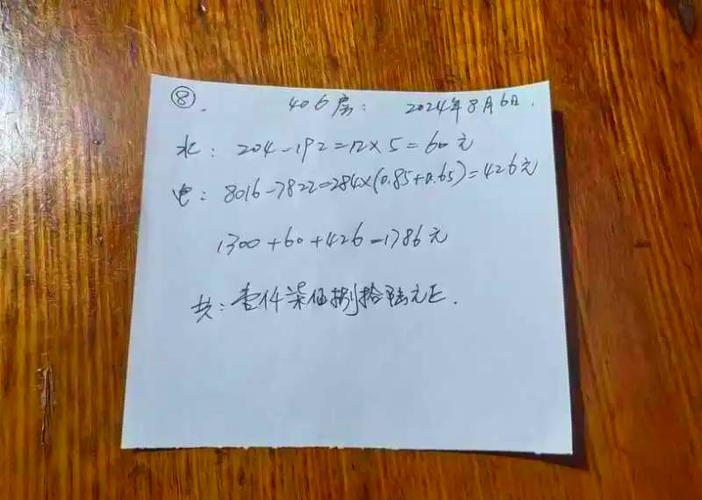 ⑧. 406房: 2024年8月6日.
水: 204-192=12×5=60元
电: 8016-7822=284×(0.85+0.65)=426元
1300+60+426=1786元
共: 壹仟柒佰捌拾陆元正.